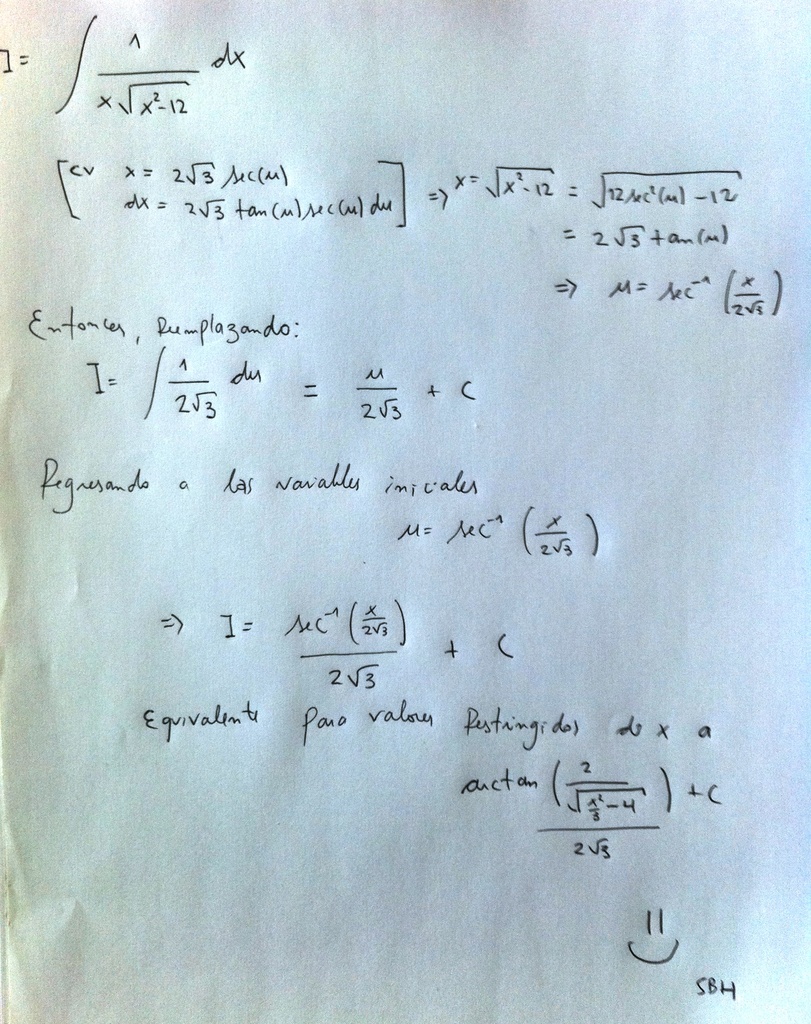 I = ∫ 1/(x√(x²-12)) dx
[cv x = 2√3 sec(u)
dx = 2√3 tan(u) sec(u) du] => x = √(x²-12) = √(12 sec²(u) - 12)
= 2√3 tan(u)
=> u = sec⁻¹(x/(2√3))
Entonces, Reemplazando:
I = ∫ 1/(2√3) du = u/(2√3) + C
Regresando a las variables iniciales
u = sec⁻¹(x/(2√3))
=> I = sec⁻¹(x/(2√3))/(2√3) + C
Equivalente para valores Restringidos de x a
arctan(2/√(x²/3 - 4))/(2√3) + C
SBH